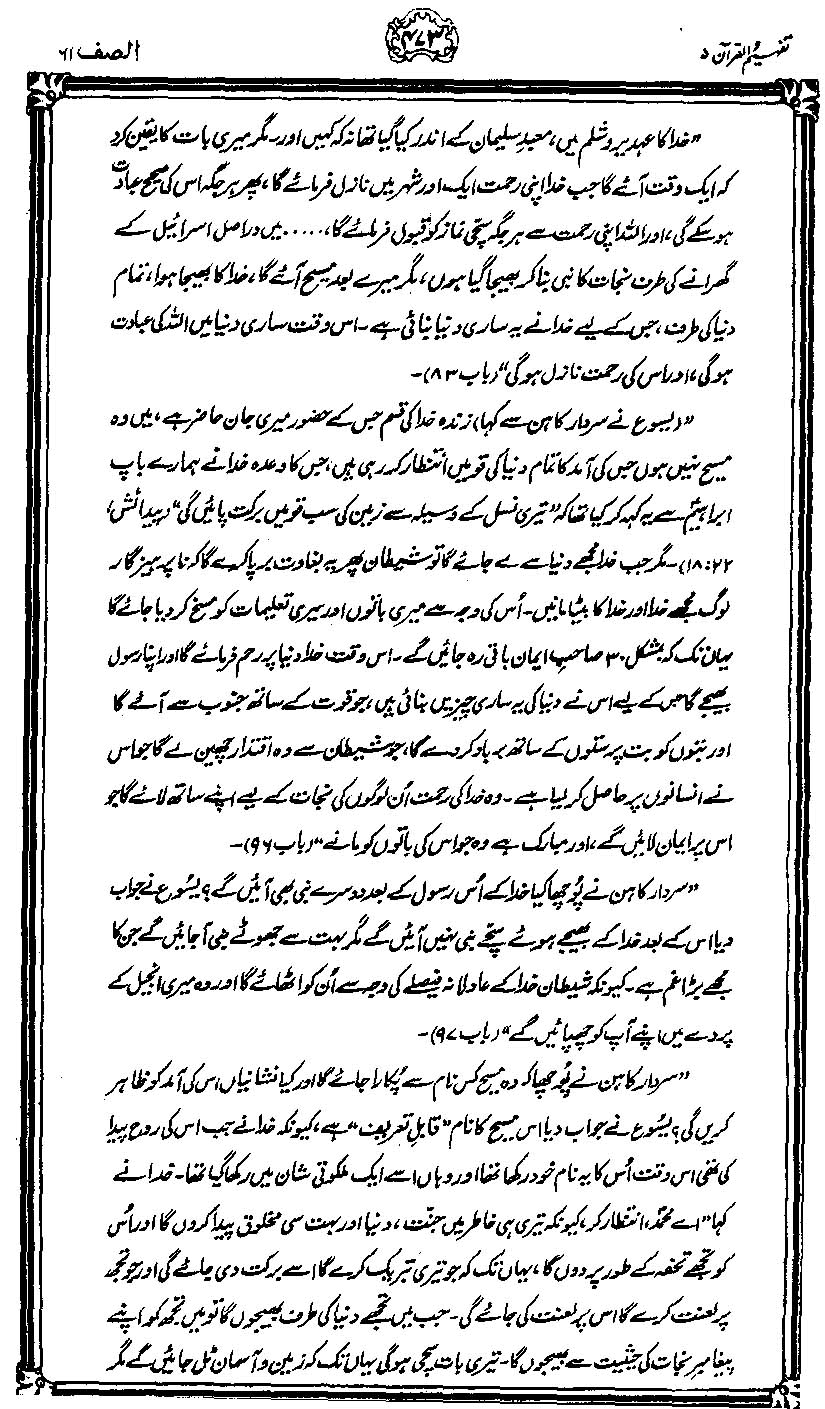 تفہیم القرآن ۵
۴۷۳
الصف ۶۱
”خدا کا عہد یروشلم میں، معبدِ سلیمان کے اندر کیا گیا تھا نہ کہ کہیں اور۔ مگر میری بات کا یقین کرو
کہ ایک وقت آئے گا جب خدا اپنی رحمت ایک اور شہر میں نازل فرمائے گا، پھر ہر جگہ اس کی صحیح عبادت
ہو سکے گی، اور اللہ اپنی رحمت سے ہر جگہ سچی نماز کو قبول فرمائے گا، ..... میں دراصل اسرائیل کے
گھرانے کی طرف نجات کا نبی بنا کر بھیجا گیا ہوں، مگر میرے بعد مسیح آئے گا، خدا کا بھیجا ہوا، تمام
دنیا کی طرف، جس کے لیے خدا نے یہ ساری دنیا بنائی ہے۔ اس وقت ساری دنیا میں اللہ کی عبادت
ہو گی، اور اس کی رحمت نازل ہو گی“ (باب ۸۳)۔
”(یسوع نے سردار کاہن سے کہا) زندہ خدا کی قسم جس کے حضور میری جان حاضر ہے، میں وہ
مسیح نہیں ہوں جس کی آمد کا تمام دنیا کی قومیں انتظار کر رہی ہیں، جس کا وعدہ خدا نے ہمارے باپ
ابراہیمؑ سے یہ کہہ کر کیا تھا کہ ”تیری نسل کے وسیلہ سے زمین کی سب قومیں برکت پائیں گی“ (پیدائش،
۱۸:۲۲)۔ مگر جب خدا مجھے دنیا سے لے جائے گا تو شیطان پھر یہ بغاوت برپا کرے گا کہ ناپرہیزگار
لوگ مجھے خدا اور خدا کا بیٹا مانیں۔ اُس کی وجہ سے میری باتوں اور میری تعلیمات کو مسخ کر دیا جائے گا
یہاں تک کہ بمشکل ۳۰ صاحبِ ایمان باقی رہ جائیں گے۔ اس وقت خدا دنیا پر رحم فرمائے گا اور اپنا رسول
بھیجے گا جس کے لیے اس نے دنیا کی یہ ساری چیزیں بنائی ہیں، جو قوت کے ساتھ جنوب سے آئے گا
اور بتوں کو بت پرستوں کے ساتھ برباد کر دے گا، جو شیطان سے وہ اقتدار چھین لے گا جو اس
نے انسانوں پر حاصل کر لیا ہے۔ وہ خدا کی رحمت اُن لوگوں کی نجات کے لیے اپنے ساتھ لائے گا جو
اس پر ایمان لائیں گے، اور مبارک ہے وہ جو اس کی باتوں کو مانے“ (باب ۹۶)۔
”سردار کاہن نے پُوچھا کیا خدا کے اُس رسول کے بعد دوسرے نبی بھی آئیں گے؟ یسُوع نے جواب
دیا اس کے بعد خدا کے بھیجے ہوئے سچے نبی نہیں آئیں گے مگر بہت سے جھوٹے نبی آ جائیں گے جن کا
مجھے بڑا غم ہے۔ کیونکہ شیطان خدا کے عادلانہ فیصلے کی وجہ سے اُن کو اٹھائے گا اور وہ میری انجیل کے
پردے میں اپنے آپ کو چھپائیں گے“ (باب ۹۷)۔
”سردار کاہن نے پُوچھا کہ وہ مسیح کس نام سے پُکارا جائے گا اور کیا نشانیاں اس کی آمد کو ظاہر
کریں گی؟ یسُوع نے جواب دیا اس مسیح کا نام ”قابلِ تعریف“ ہے، کیونکہ خدا نے جب اس کی روح پیدا
کی تھی اس وقت اُس کا یہ نام خود رکھا تھا اور وہاں اسے ایک ملکوتی شان میں رکھا گیا تھا۔ خدا نے
کہا ”اے محمدؐ، انتظار کر، کیونکہ تیری ہی خاطر میں جنّت، دنیا اور بہت سی مخلوق پیدا کروں گا اور اُس
کو تجھے تحفہ کے طور پر دوں گا، یہاں تک کہ جو تیری تبریک کرے گا اسے برکت دی جائے گی اور جو تجھ
پر لعنت کرے گا اس پر لعنت کی جائے گی۔ جب میں تجھے دنیا کی طرف بھیجوں گا تو میں تجھ کو اپنے
پیغامبرِ نجات کی حیثیت سے بھیجوں گا۔ تیری بات سچی ہو گی یہاں تک کہ زمین و آسمان ٹل جائیں گے مگر